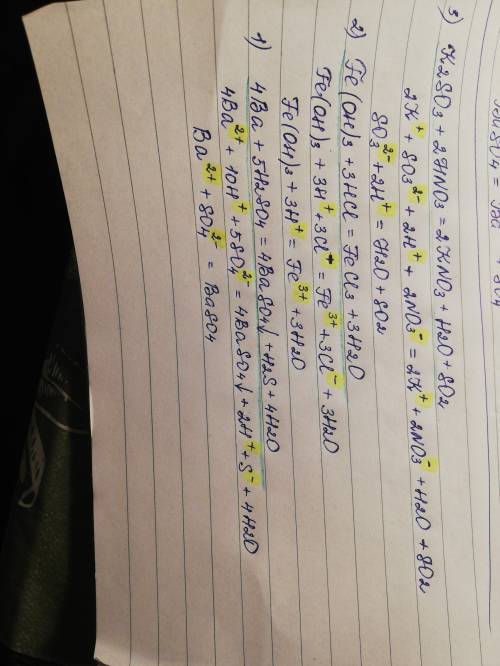 3) K2SO3 + 2HNO3 = 2KNO3 + H2O + SO2
2K⁺ + SO3²⁻ + 2H⁺ + 2NO3⁻ = 2K⁺ + 2NO3⁻ + H2O + SO2
SO3²⁻ + 2H⁺ = H2O + SO2
2) Fe(OH)3 + 3HCl = FeCl3 + 3H2O
Fe(OH)3 + 3H⁺ + 3Cl⁺ = Fe³⁺ + 3Cl⁻ + 3H2O
Fe(OH)3 + 3H⁺ = Fe³⁺ + 3H2O
1) 4Ba + 5H2SO4 = 4BaSO4↓ + H2S + 4H2O
4Ba²⁺ + 10H⁺ + 5SO4²⁻ = 4BaSO4↓ + 2H⁺ + S⁻ + 4H2O
Ba²⁺ + SO4²⁻ = BaSO4